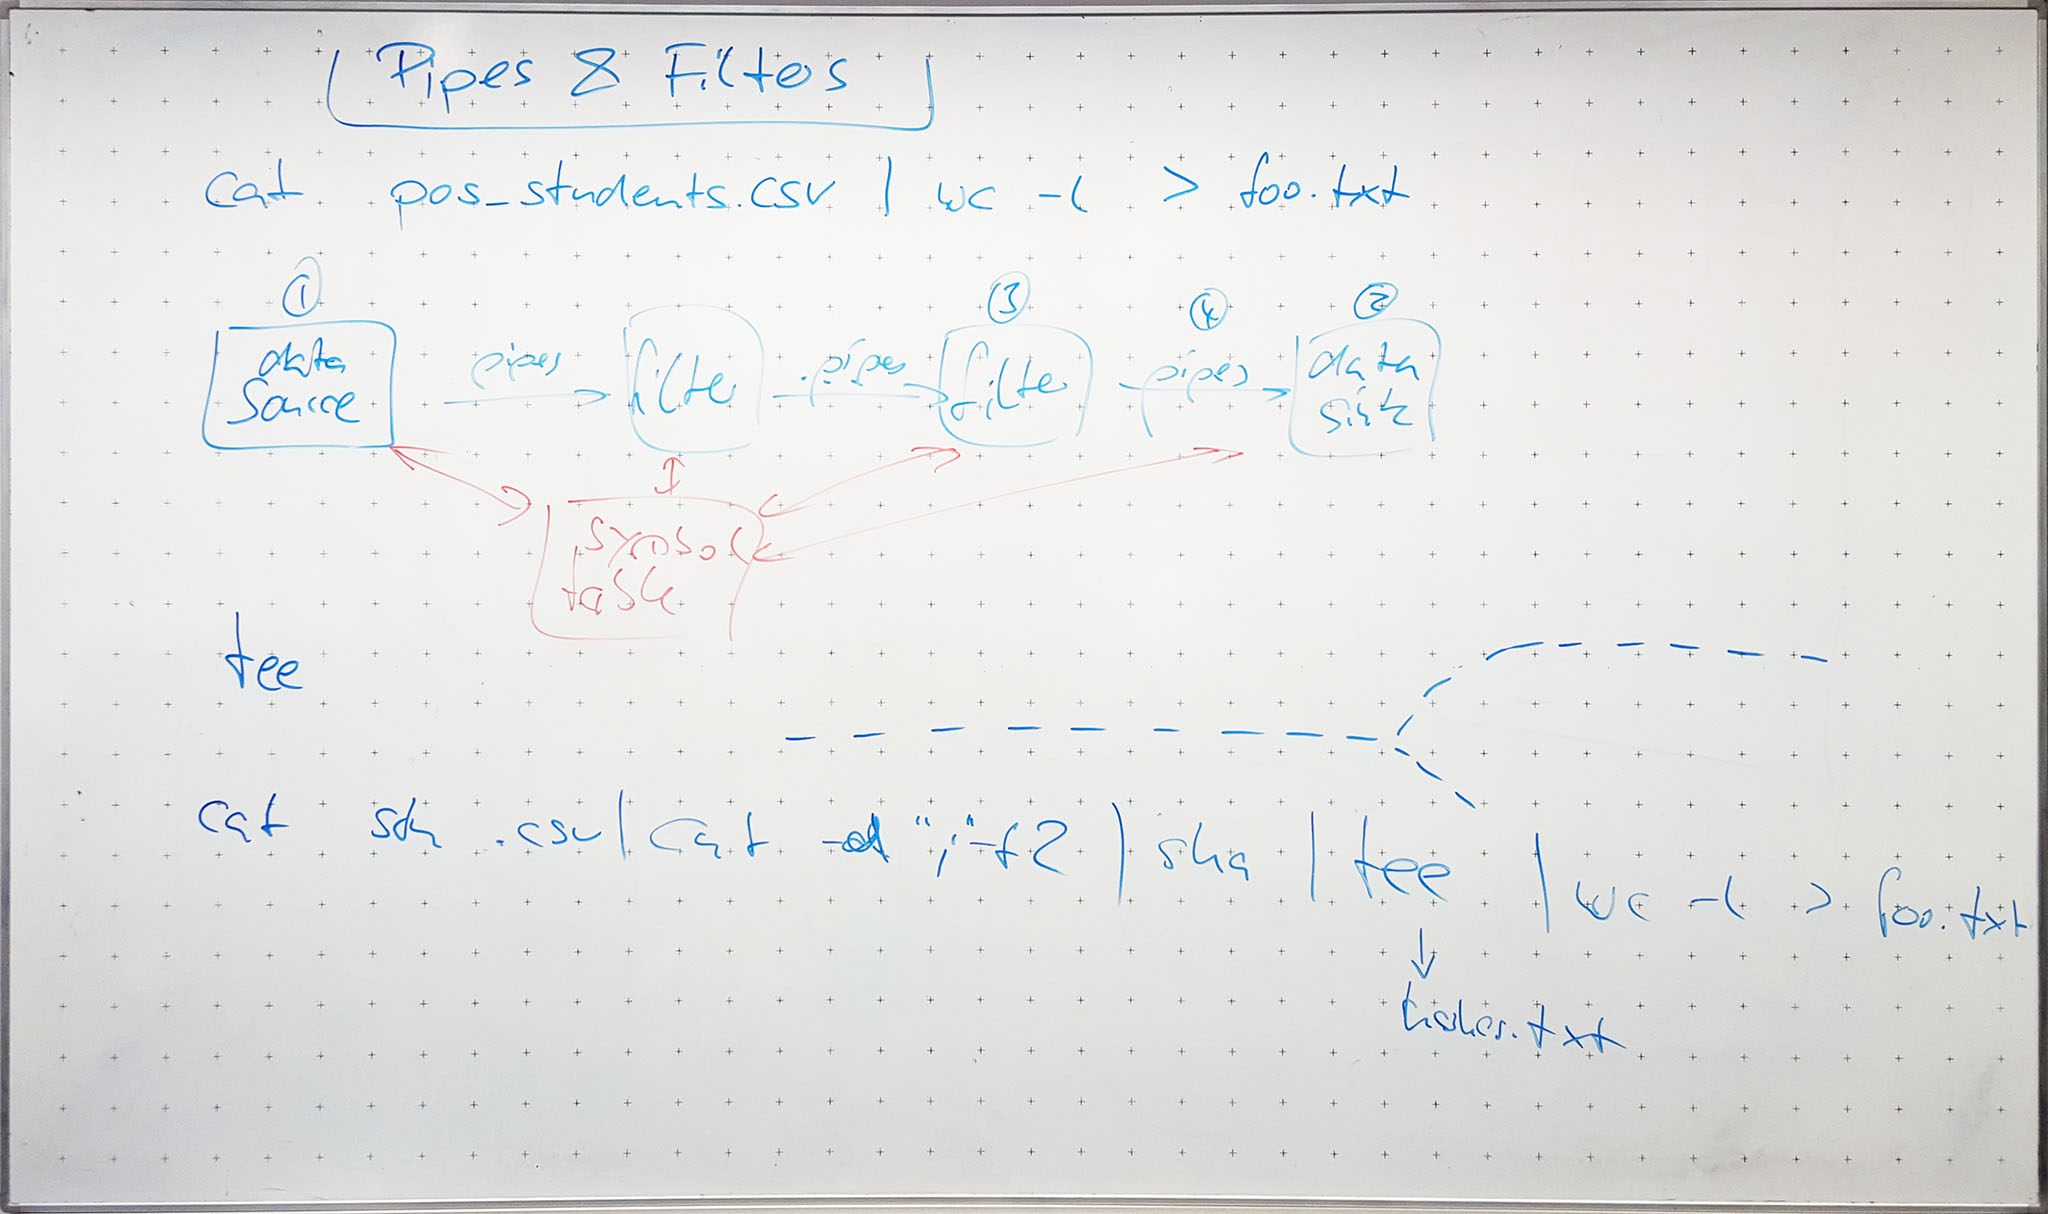 Pipes & Filters
cat pos_students.csv | wc -l > foo.txt
① ③ ④ ②
data source pipes filter pipes filter pipes data sink
symbol table
tee
cat sth .csv | cat -d ";" -f2 | sha | tee | wc -l > foo.txt
↓
hashes.txt